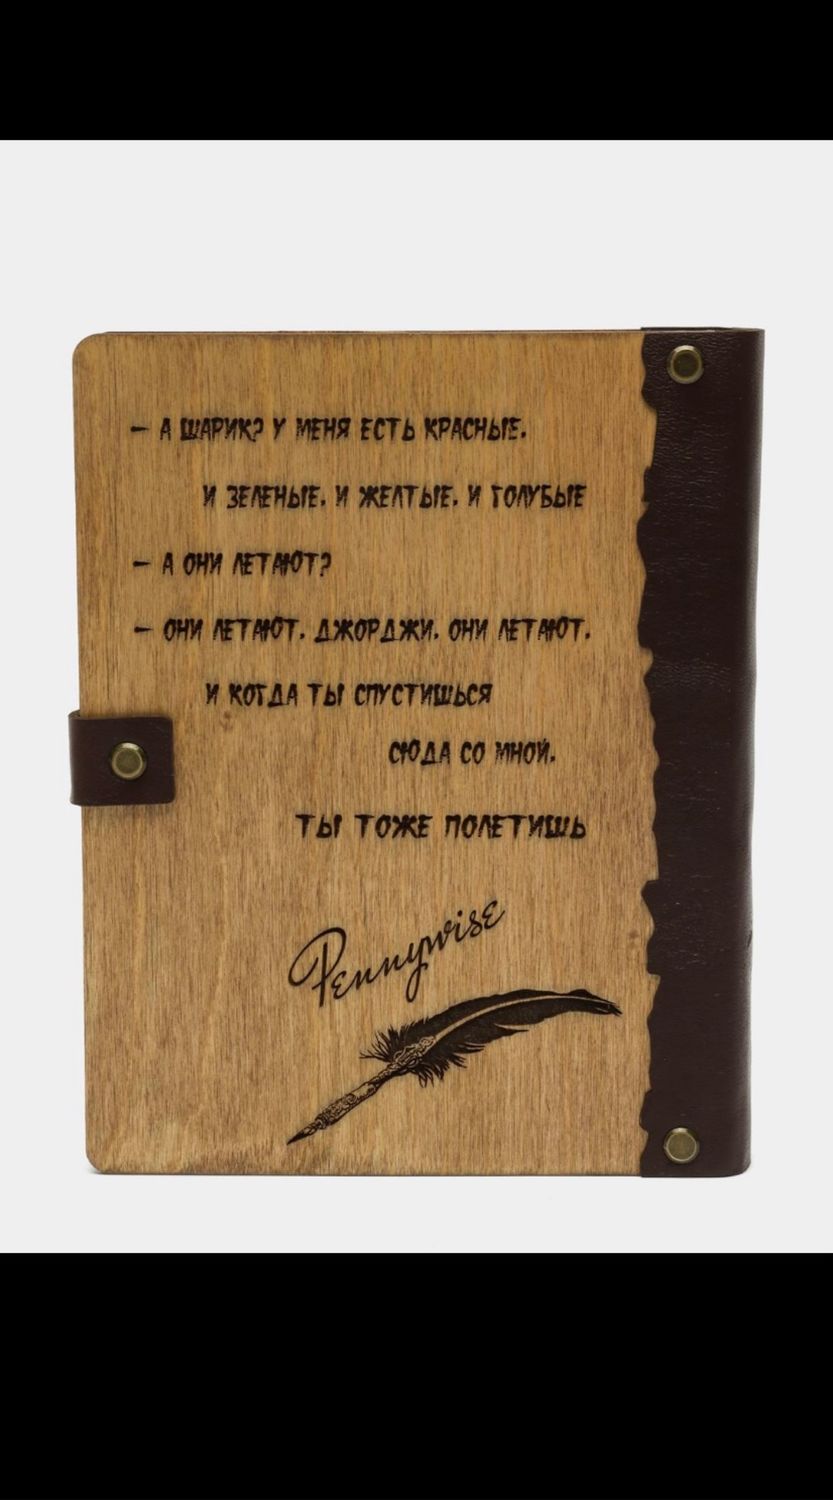 – А ШАРИК? У МЕНЯ ЕСТЬ КРАСНЫЕ.
И ЗЕЛЕНЫЕ. И ЖЕЛТЫЕ. И ГОЛУБЫЕ
– А ОНИ ЛЕТАЮТ?
– ОНИ ЛЕТАЮТ. ДЖОРДЖИ. ОНИ ЛЕТАЮТ.
И КОГДА ТЫ СПУСТИШЬСЯ
СЮДА СО МНОЙ.
ТЫ ТОЖЕ ПОЛЕТИШЬ
Pennywise